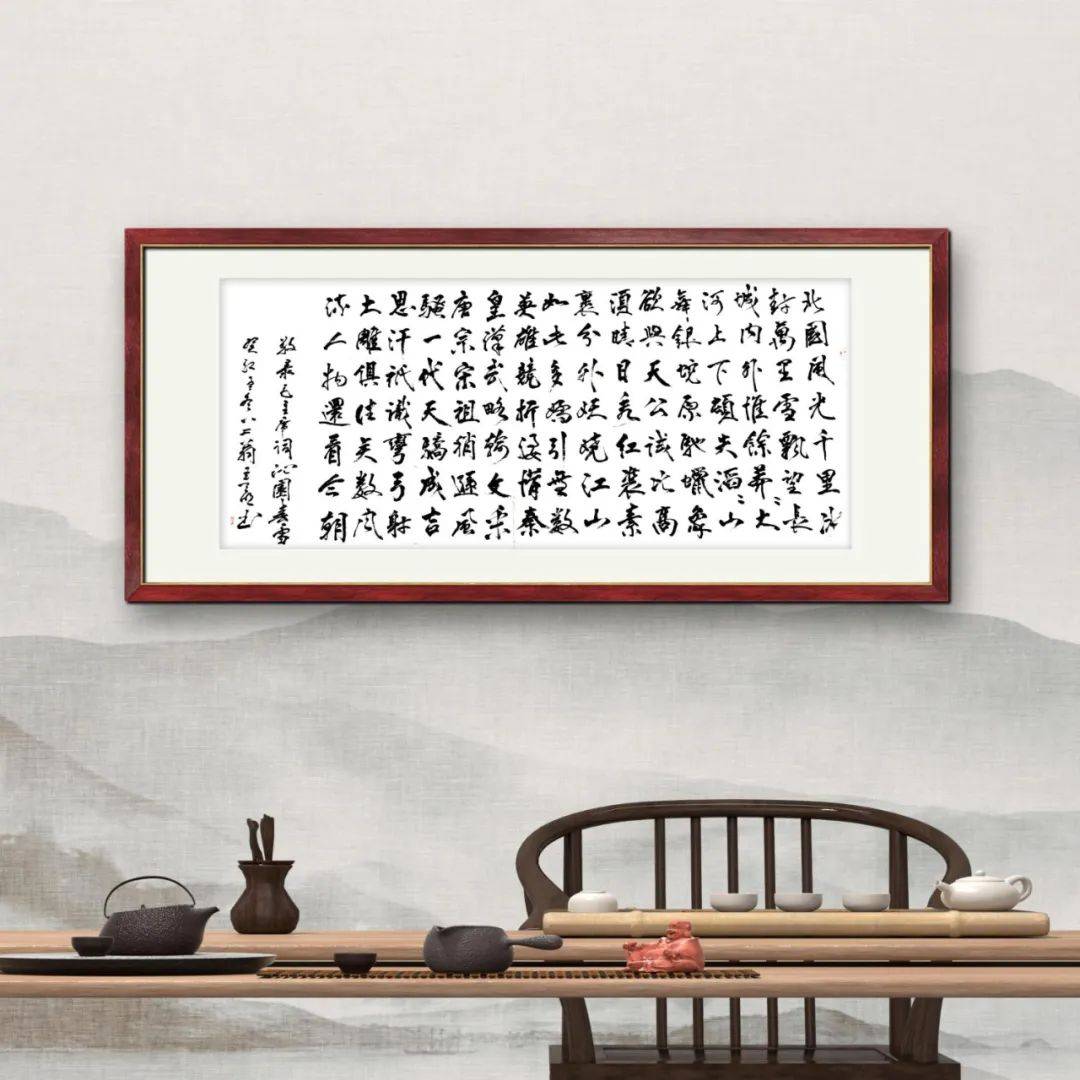 北國风光千里冰
封萬里雪飘望長
城内外惟餘莽〻大
河上下頓失滔〻山
舞銀蛇原馳蠟象
欲與天公試比高
須晴日看红裝素
裹分外妖嬈江山
如此多嬌引無数
英雄競折腰惜秦
皇漢武略輸文采
唐宗宋祖稍遜風
騷一代天驕成吉
思汗衹識彎弓射
大雕俱往矣数风
流人物還看今朝
敬录毛主席词沁園春雪
癸卯年冬八二翁王书